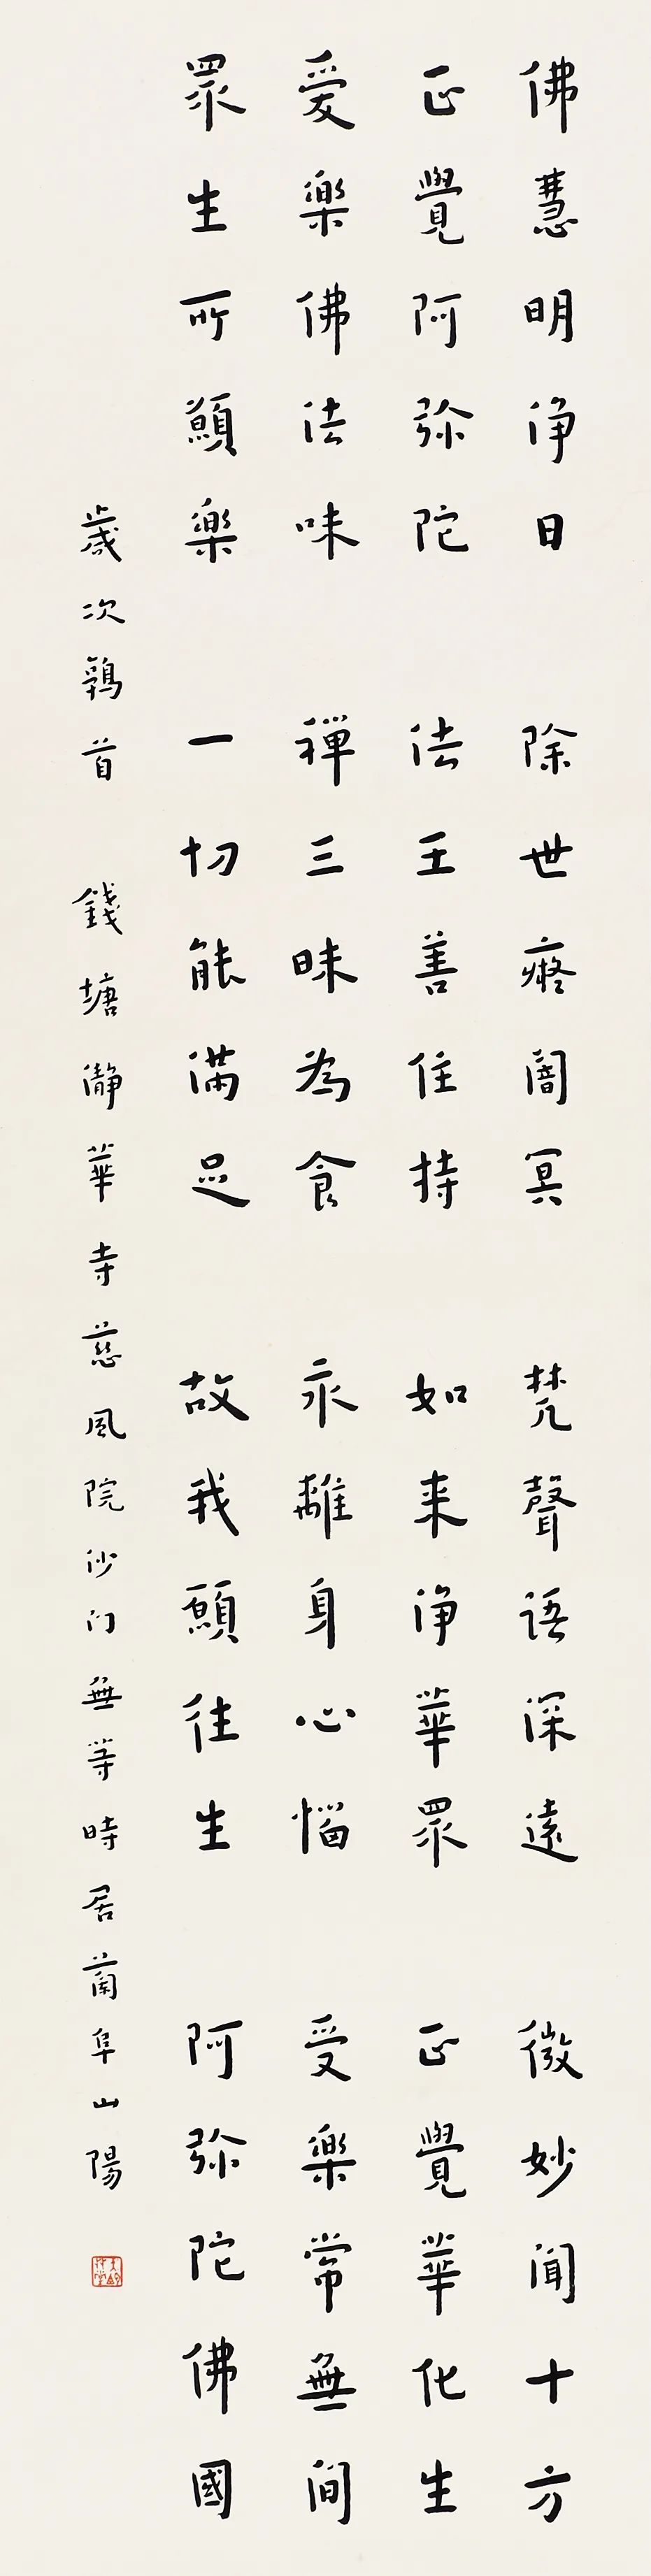 佛慧明淨日 除世癡闇冥 梵聲語深遠 微妙聞十方
正覺阿弥陀 法王善住持 如来淨華眾 正覺華化生
愛樂佛法味 禪三昧為食 永離身心惱 受樂常無間
眾生所願樂 一切能滿足 故我願往生 阿弥陀佛國
歲次鶉首 錢塘瀞華寺慈風院沙门無等時居蘭阜山陽